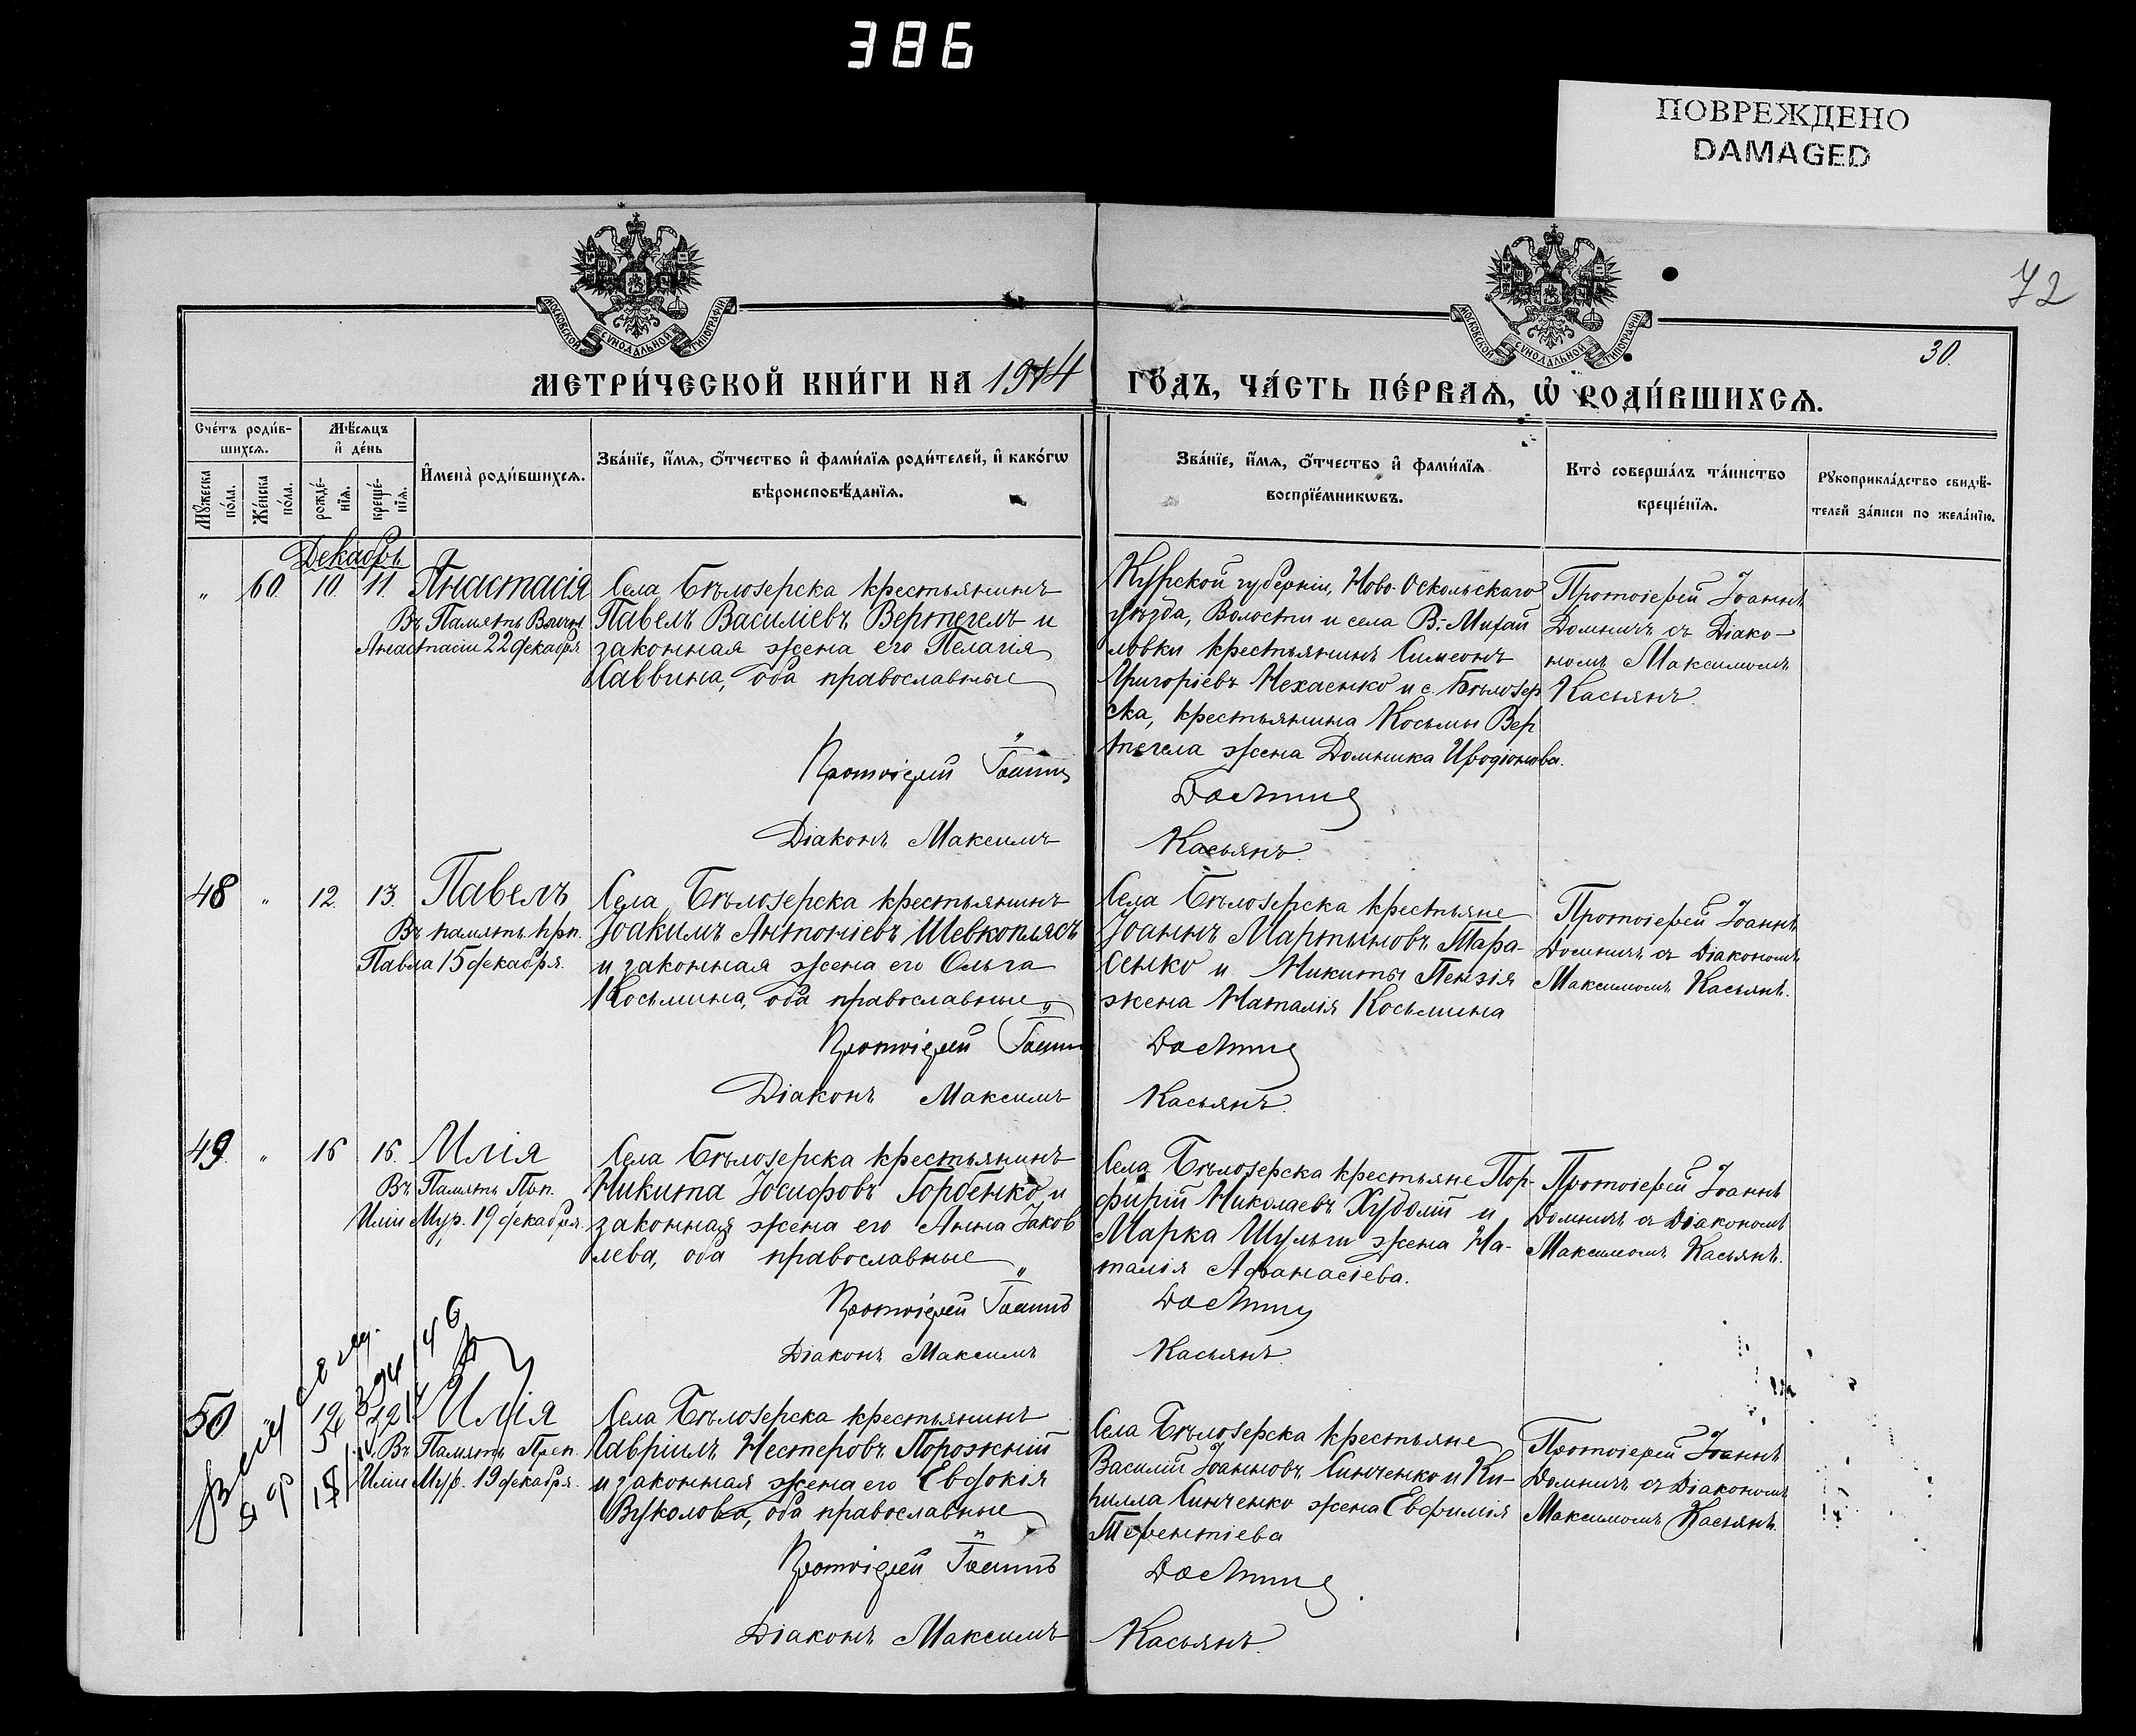 386
ПОВРЕЖДЕНО
DAMAGED
72
МОСКОВСКОЙ СѴНОДАЛЬНОЙ ТИПОГРАФІИ
МОСКОВСКОЙ СѴНОДАЛЬНОЙ ТИПОГРАФІИ
30.
МЕТРИ́ЧЕСКОЙ КНИ́ГИ НА 1914 ГО́ДЪ, ЧА́СТЬ ПЕ́РВАѦ, Ѡ РОДИ́ВШИХСѦ.
Сче́тъ роди́в-
шихсѧ.
Мꙋ́жеска по́ла.
Же́нска по́ла.
Мѣ́сѧцъ
и҆ де́нь
рожде́-
нїѧ.
креще́-
нїѧ.
И҆мена̀ роди́вшихсѧ.
Зва́нїе, и҆́мѧ, ѻ҆́тчество и҆ фами́лїѧ роди́телей, и҆ како́гѡ
вѣроисповѣ́данїѧ.
Зва́нїе, и҆́мѧ, ѻ҆́тчество и҆ фами́лїѧ
воспрїе́мникѡвъ.
Кто̀ соверша́лъ та́инство
креще́нїѧ.
Рꙋкоприкла́дство свидѣ́-
телей за́писи по жела́нїю.
Декабрь
" 60. 10. 11. Анастасія
Въ Память Велмч.
Анастасіи 22 декабря
Села Бѣлозерска крестьянинъ
Павелъ Василіевъ Вертегелъ и
законная жена его Пелагія
Саввина, оба православные
Протоіерей Іоаннъ
Діаконъ Максимъ
Курской губерніи, Ново-Оскольскаго
уѣзда, Волости и села В.-Михай
ловки крестьянинъ Симеонъ
Григоріевъ Нехаенко и с. Бѣлозер
ска, крестьянина Косьмы Вер
тегела жена Домника Иродіонова.
Домничъ
Касьянъ.
Протоіерей Іоаннъ
Домничъ съ Діако-
номъ Максимомъ
Касьянъ.
48 " 12. 13. Павелъ
Въ память прп.
Павла 15 декабря.
Села Бѣлозерска крестьянинъ
Іоакимъ Антоніевъ Шевкоплясъ
и законная жена его Ольга
Косьмина, оба православные
Протоіерей Іоаннъ
Діаконъ Максимъ
Села Бѣлозерска крестьяне
Іоаннъ Мартыновъ Тара-
сенко и Никиты Пензія
жена Наталія Косьмина
Домничъ
Касьянъ.
Протоіерей Іоаннъ
Домничъ съ Діакономъ
Максимомъ Касьянъ.
49. " 16 16. Илія
Въ Память Прп.
Иліи Мур. 19 декабря.
Села Бѣлозерска крестьянинъ
Никита Іосифовъ Горбенко, и
законная жена его Анна Іаков
лева, оба православные
Протоіерей Іоаннъ
Діаконъ Максимъ
Села Бѣлозерска крестьяне Пор-
фирій Николаевъ Худолій и
Марка Шульги жена На-
талія Аѳанасіева.
Домничъ
Касьянъ.
Протоіерей Іоаннъ
Домничъ съ Діакономъ
Максимомъ Касьянъ.
50 Илія
Въ Память Преп.
Иліи Мур. 19 декабря.
Села Бѣлозерска крестьянинъ
Гавріилъ Нестеровъ Порожній
и законная жена его Евдокія
Вуколова, оба православные
Протоіерей Іоаннъ
Діаконъ Максимъ
Села Бѣлозерска крестьяне
Василій Іоанновъ Синченко и Ки-
рилла Синченко жена Евфимія
Терентіева
Домничъ
Касьянъ.
Протоіерей Іоаннъ
Домничъ съ Діакономъ
Максимомъ Касьянъ.